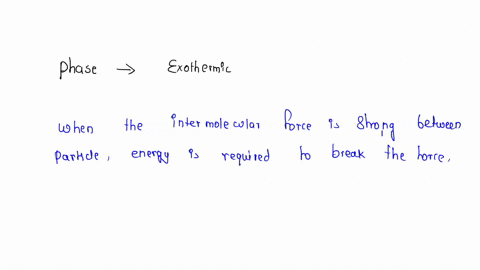 phase → Exothermic
when the intermolecular force is strong between
particle, energy is required to break the force.